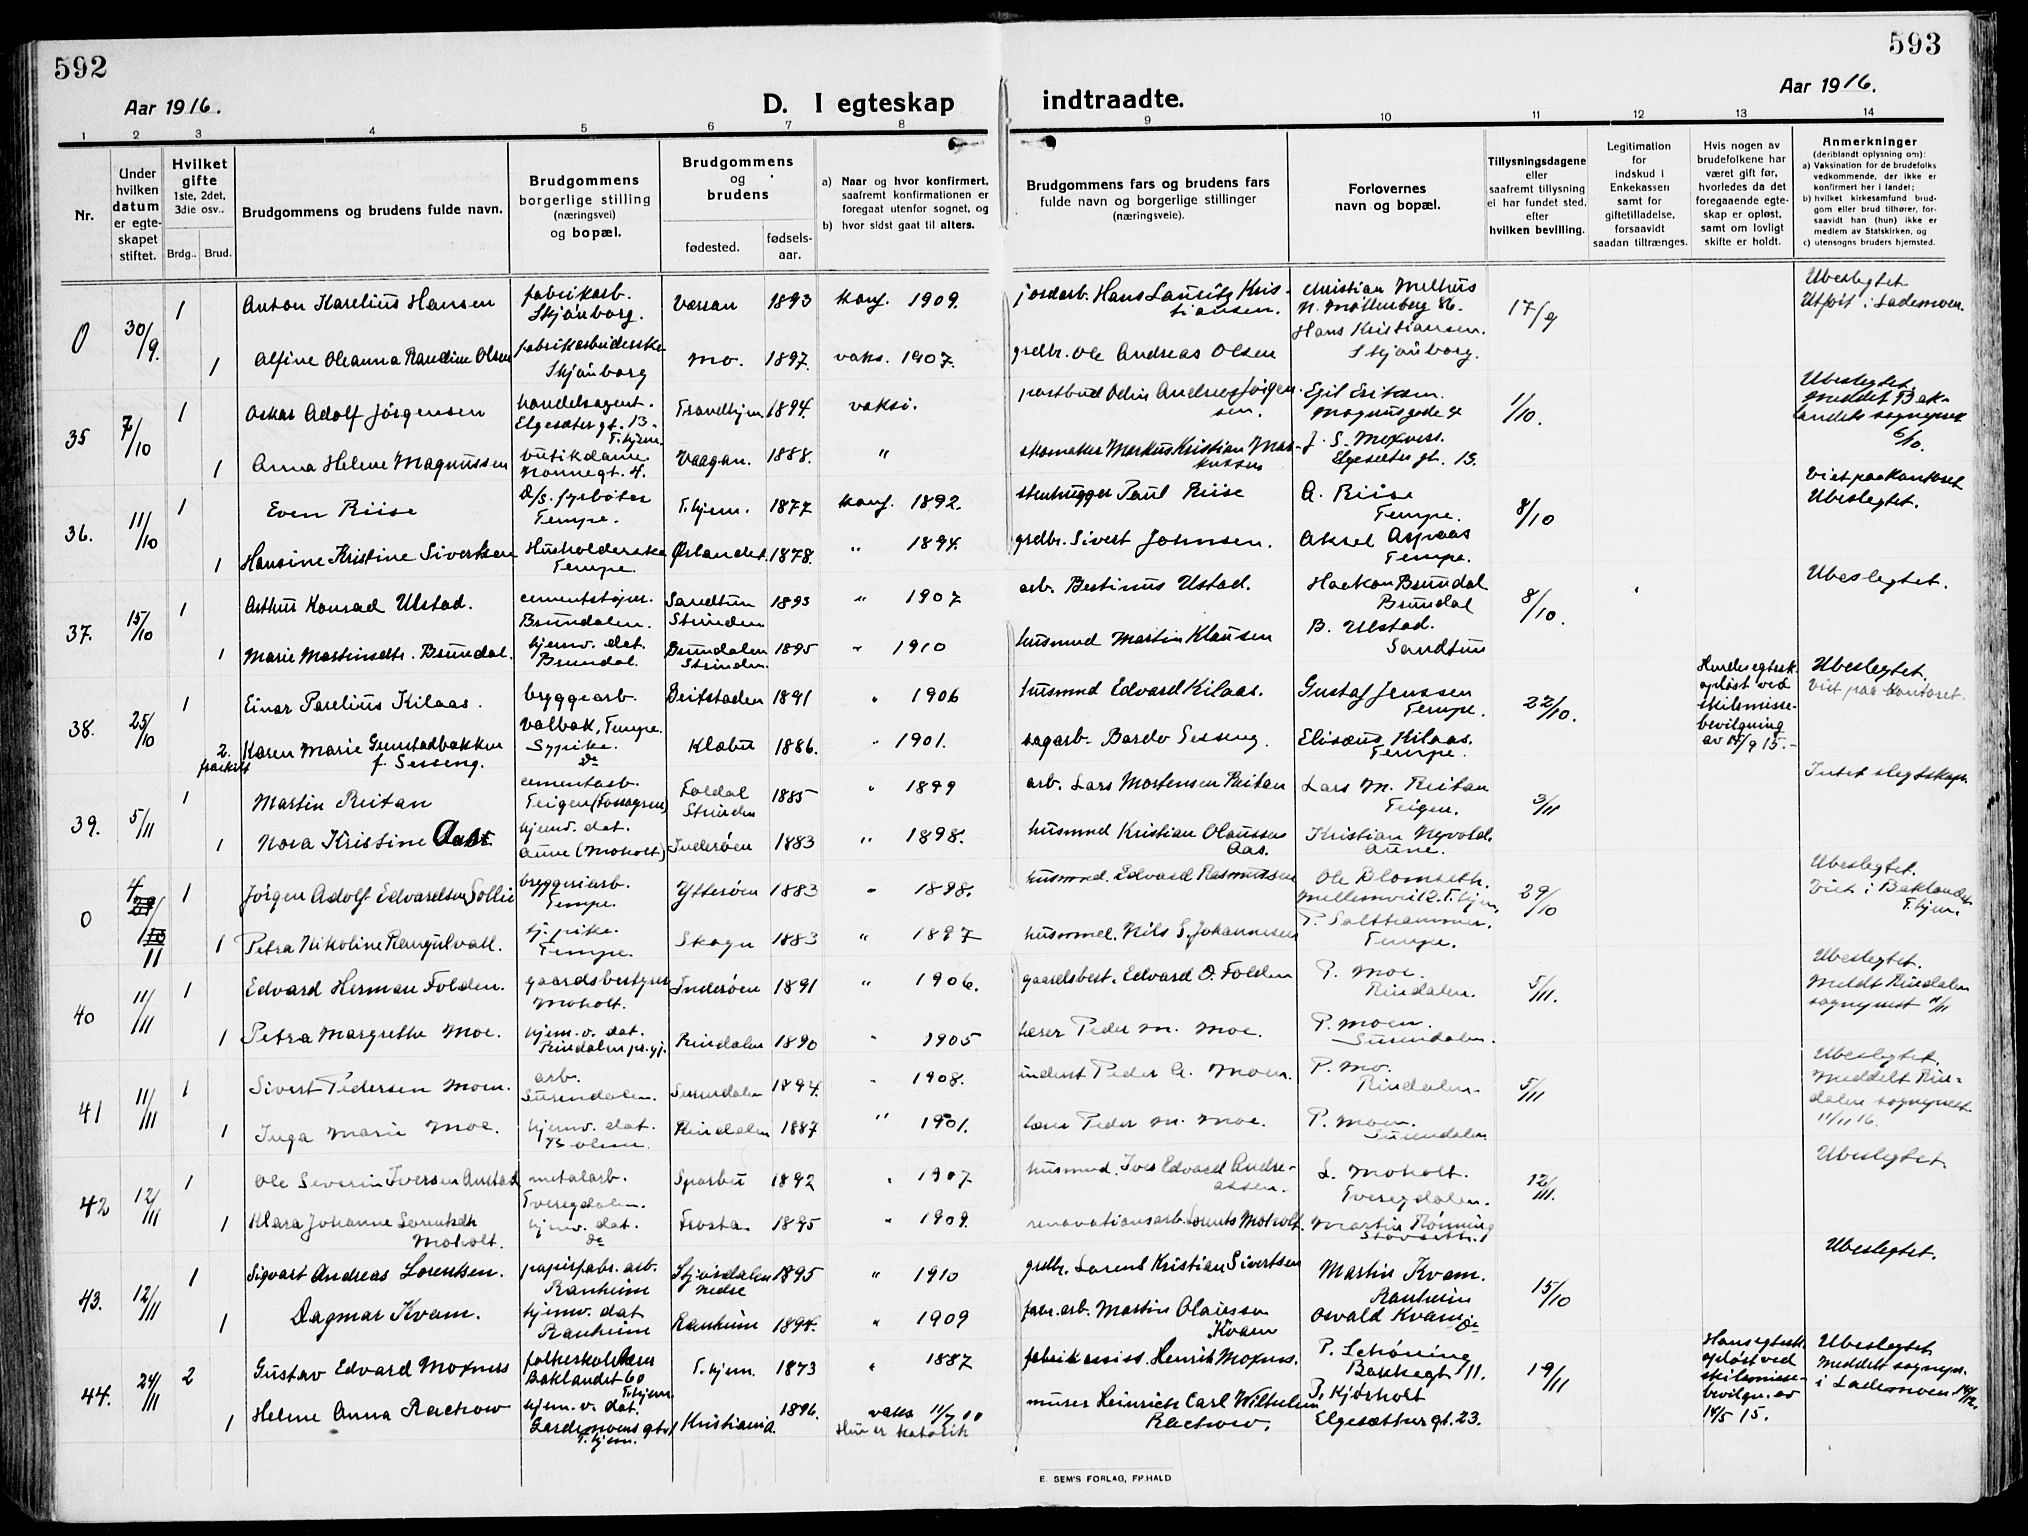 592
593
Aar 1916.
Aar 1916.
D. I egteskap indtraadte.
1 2 3 4 5 6 7 8 9 10 11 12 13 14
Nr.
Under hvilken datum er egteskapet stiftet.
Hvilket gifte
1ste, 2det, 3die osv..
Brdg.. Brud.
Brudgommens og brudens fulde navn.
Brudgommens borgerlige stilling (næringsvei) og bopæl.
Brudgommens og brudens
fødested.
fødsels-aar.
a) Naar og hvor konfirmert, saafremt konfirmationen er foregaat utenfor sognet, og
b) hvor sidst gaat til alters.
Brudgommens fars og brudens fars fulde navn og borgerlige stillinger (næringsveie).
Forlovernes navn og bopæl.
Tillysningsdagene eller saafremt tillysning ei har fundet sted, efter hvilken bevilling.
Legitimation for indskud i Enkekassen samt for giftetilladelse, forsaavidt saadan tiltrænges.
Hvis nogen av brudefolkene har været gift før, hvorledes da det foregaaende egteskap er opløst, samt om lovligt skifte er holdt.
Anmerkninger (deriblandt oplysning om):
a) Vaksination for de brudefolks vedkommende, der ikke er konfirmert her i landet;
b) hvilket kirkesamfund brudgom eller brud tilhører, forsaavidt han (hun) ikke er medlem av Statskirken, og
c) utensogns bruders hjemsted.
0 30/9. 1 Anton Karelius Hansen fabrikarb. Skjönborg. 1893 konf. 1909. jordarb. Hans Lauritz Kristiansen. Christian Melhus N. Möllenberg 86. 17/9 Ubeslegtet Utført i Lademoen.
1 Alfine Oleanna Randine Olsen fabrikarbeiderske Skjönborg Mo. 1897. vaks. 1907. grdbr. Ole Andreas Olsen Hans Kristiansen. Skjönborg.
35 7/10 1 Oskar Adolf Jörgensen handelsagent. Elgesæter gt. 13. T.hjem. Trondhjem 1894. vaks. postbud Odin Andreas Jörgensen. Egil Eriksen. Magnusgade 4 1/10. Ubeslegtet. meddelt Baklandets sogneprest 6/10.
1 Anna Helene Magnussen butikdame Nonnegt. 4. Vaagan. 1888. " skomaker Markus Kristian J. S. Moxness. Elgesæter gt. 13.
36. 11/10 1 Even Riise D/S. fyrböter Tempe. T.hjem. 1877 konf. 1892. stenhugger Paul Riise A. Riise Tempe. 8/10 Viet paa kontoret Ubeslegtet.
1 Hansine Kristine Sivertsen Husholderske Tempe. Ørlandet. 1878. " 1894. grdbr. Sivert Johnsen. Aksel Aspaas Tempe.
37. 15/10 1 Arthur Konrad Ulstad. cementstøper. Brundalen. Sandtun Strinden 1893 " 1907 arb. Bertinus Ulstad. Haakon Brundal Brundal 8/10. Ubeslegtet.
1 Marie Martinsdtr. Brundal. hjemv. dat. Brundal. Brundalen Strinden. 1895 " 1910 husmnd Martin Klausen B. Ulstad. Sandtun
38. 25/10 1 Einar Parelius Kilaas. bryggearb. Valbak, Tempe. Beitstaden 1891 " 1906 husmnd Edvard Kilaas. Gustaf Jenssen Tempe. 22/10. Hendes egtesk. opløst ved skilsmissebevilgning av 15/9 15. Ubeslegtet. Viet paa kontoret.
2. fraskilt Karen Marie Grenstadbakken f. Sesseng. Sypike. do Klæbu 1886. " 1901. sagarb. Bardo Sesseng. Elisæus Kilaas. Tempe.
39. 5/11 1 Martin Reitan cementarb. Teigen (Fossegren) Foldal Strinden 1885 " 1899 arb. Lars Mortensen Reitan Lars M. Reitan Teigen. 3/11 Intet slegtskap.
1 Nora Kristine Aas. hjemv. dat. Aune (Moholt) Inderøen 1883 " 1898. husmnd Kristian Olaussen Aas. Kristian Nyvold. Aune.
0 4/11 1 Jörgen Adolf Edvardsen Sollie bryggeriarb. Tempe. Ytterøen 1883 " 1898. husmnd. Edvard Rasmussen Ole Blomseth. Mellemveit 2. T.hjem. 29/10 Ubeslegtet. Viet i Baklandet T.hjem.
1 Petra Nikoline Rangulvall tj. pike. Tempe. Skogn 1883 " 1897 husmnd. Nils S. Johannesen P. Salthammer. Tempe.
40 11/11 1 Edvard Herman Folden. gaardsbestyrer Moholt. Inderøen 1891 " 1906. gaardsbest. Edvard O. Folden P. Moe. Rindalen. 5/11. Ubeslegtet. Meldt Rindalen sogneprest 11/11
1 Petra Margrethe Moe. hjem. v. dat. Rindalen Rindalen 1890 " 1905 lærer Peder M. Moe. P. Moen. Surendalen.
41 11/11 1 Sivert Pedersen Moen. arb. Surendalen. Surendalen 1894. " 1908. inderst Peder A. Moen. P. Mo. Rindalen. 5/11 Ubeslegtet. Meddelt Rindalens sogneprest. 11/11 16.
1 Inga Marie Moe. hjemv. dat. Rindalen 1887 " 1901. lærer Peder M. Moe. P. Moen. Surendalen
42 12/11 1 Ole Severin Iversen Austad metalarb. Tveregdalen. Sparbu 1892 " 1907 husmnd. Iver Edvard Andreassen. L. Moholt. Tveregdalen. 12/11. Ubeslegtet.
1 Klara Johanne Lorentsdtr Moholt. hjemv. dat. do Frosta 1895 " 1909. renovationsarb. Lorents Moholt. Martin Rönning
43. 12/11 1 Sigvart Andreas Lorentsen. papirfabr. arb. Ranheim Stjørdalen nedre 1895 " 1910 grdbr. Lorents Kristian Sivertsen Martin Kvam. Ranheim 15/10 Ubeslegtet.
1 Dagmar Kvam. hjemv. dat Ranheim Ranheim 1894. " 1909 fabr. arb. Martin Olaussen Kvam Osvald Kvam do
44. 24/11 2 Gustav Edvard Moxness folkeskolelærer Baklandet 60 T.hjem. T.hjem. 1873 " 1887 fabrikassist. Henrik Moxnes. P. Schöning Bakkegt 11. 19/11 Hans egtesk. opløst ved skilsmissebevilgn. av 14/5 15. Ubeslegtet. Meddelt sognepr. i Lademoen 14/12.
1 Helene Anna Rachow hjem. v. dat. Lademoens gt. T.hjem. Kristiania. 1896. vaks 11/7 10 Hun er katolik murer Heinrich Carl Wilhelm Rachow. P. Kjösholt Elgesæther gt. 23.
E. SEM'S FORLAG, FR.HALD